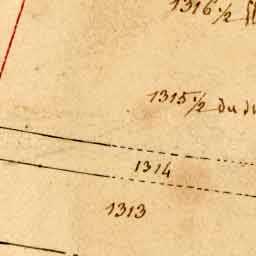 1316 1/2
1315 1/2 du
1314
1313